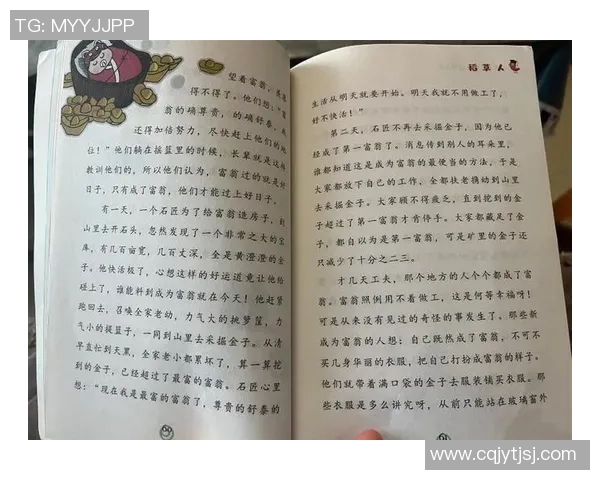 TG: MYYJJPP
望着富翁，羡慕
得不得了。他们想：“富
翁的确尊贵，的确舒泰，我
还得加倍努力，尽快赶上他们的地
位！”他们躺在摇篮里的时候，长辈就是这样
教训他们的，所以他们认为，富翁过的就是好
日子，只有成了富翁，他们才能过上好日子。
有一天，一个石匠为了给富翁造房子，到
山里去开石头，忽然发现了一个非常之大的宝
库，有几百亩宽，几百丈深，全是黄澄澄的金
子。他快活极了，心想这样的好运道竟让他给
碰上了，谁能料到成为富翁就在今天！他赶紧
跑回去，召唤全家老幼，力气大的挑箩筐，力
气小的提篮子，一同到山里去采掘金子。从清
早直忙到天黑，全家老小都累坏了，算一算挖
到的金子，已经超过了最富的富翁。石匠心里
想：“现在我是最富的富翁了，尊贵的舒泰的
60
稻草人
生活从明天就要开始。明天我就不用做工了，
好不快活！”
第二天，石匠不再去采掘金子，因为他已
经成了第一富翁了。消息传到别人的耳朵里，
谁都知道这是成为富翁的最便当的方法，于是
大家都放下自己的工作，全都扶老携幼到山里
去采掘金子。大家顾不得疲乏，直到挖到的金
子超过了第一富翁才肯停手。大家都藏足了金
子，都自以为是第一富翁，可是矿里的金子还
只减少了十分之二三。
才几天工夫，那个地方的人个个都成了富
翁。富翁照例用不着做工，这是何等幸福呀！
可是从来没有见过的奇怪的事发生了。那些新
成为富翁的人想：自己既然成了富翁，不可不
买几身华丽的衣服，把自己打扮成富翁的样子。
他们就带着满口袋的金子去服装铺买衣服。那
些衣服是多么讲究呀，从前只能站在玻璃窗外
61
www.cqjytjsj.com